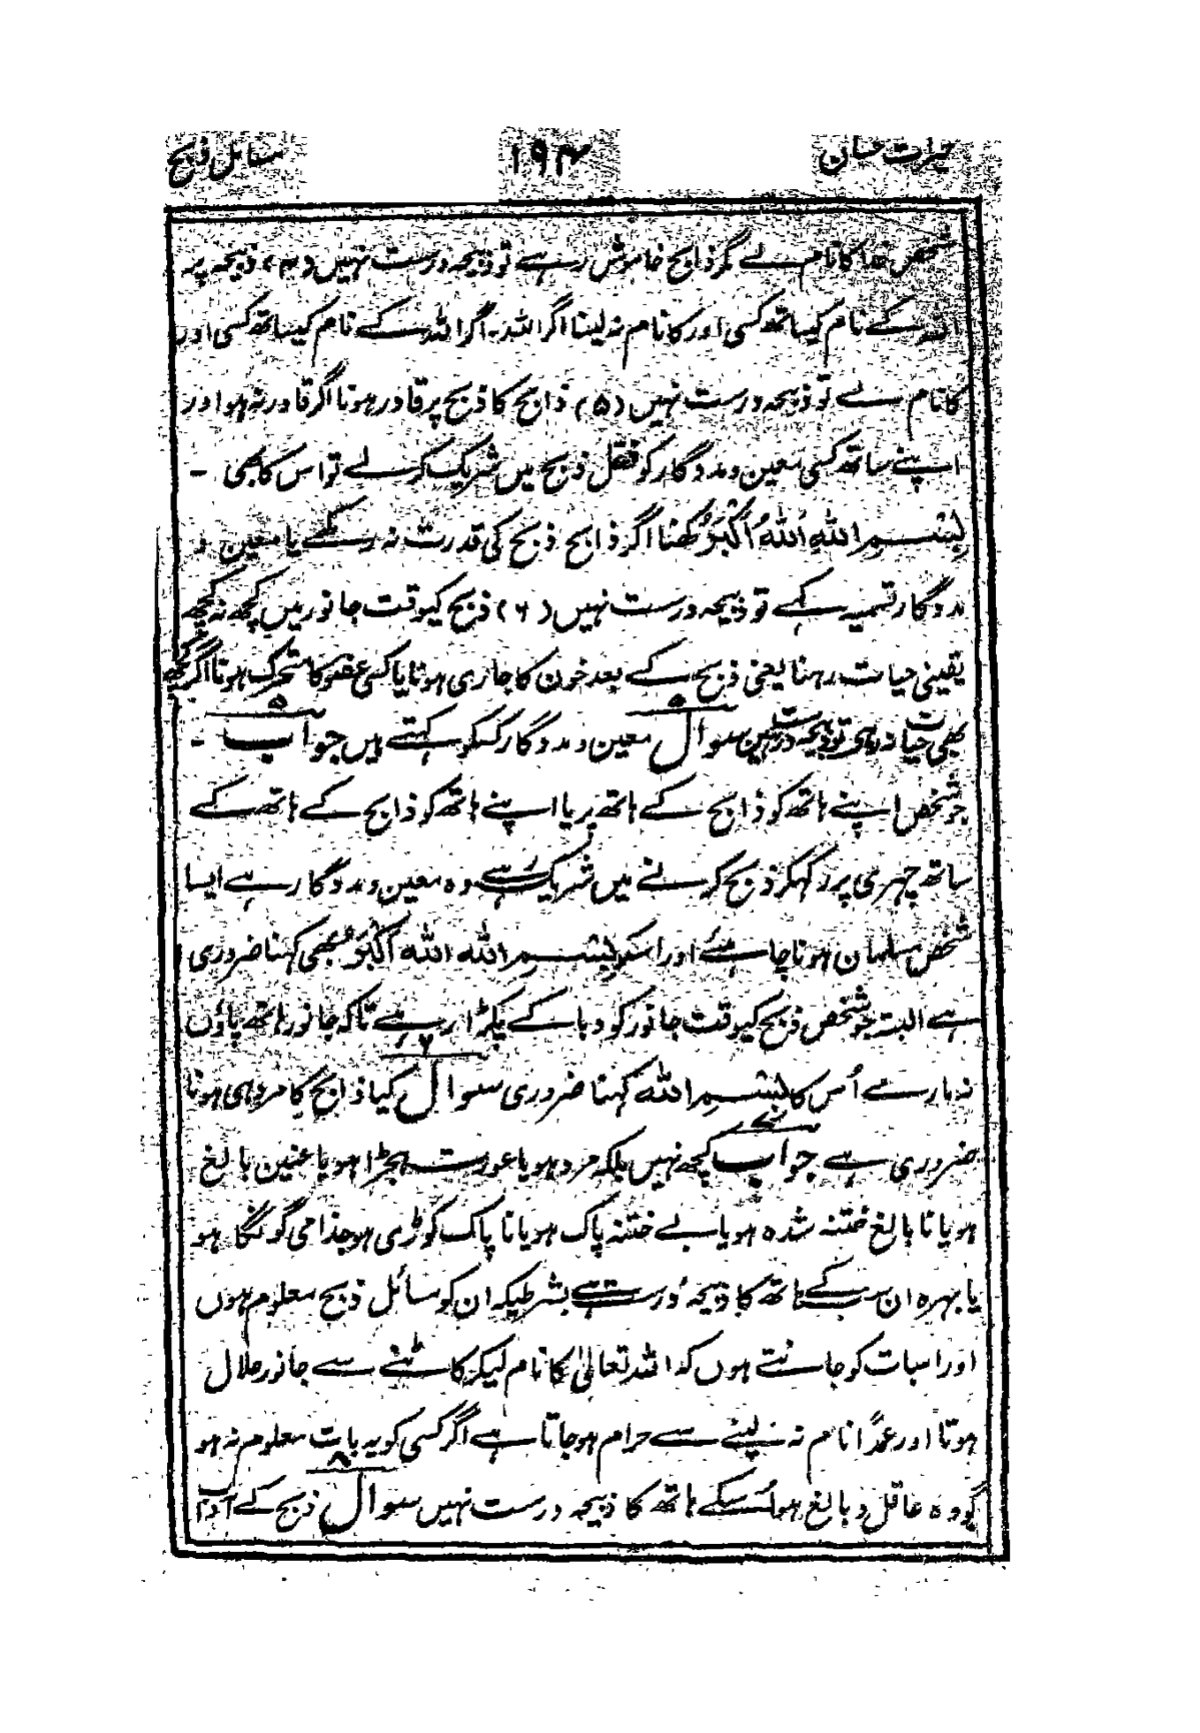 مسائل ذبح ۱۹۴ خیرات حسان
شخص خدا کا نام لے مگر ذابح خاموش رہے تو ذبیحہ درست نہیں (۴) ذبیحہ پر
اللہ کے نام کیساتھ کسی اور کا نام نہ لینا اگر اللہ۔ اگر اللہ کے نام کیساتھ کسی اور
کا نام لے تو ذبیحہ درست نہیں (۵) ذابح کا ذبح پر قادر ہونا اگر قادر نہ ہو اور
اپنے ساتھ کسی معین و مددگار کو فعل ذبح میں شریک کر لے تو اس کا بھی ۔
بِسْمِ اللهِ اَللهُ اَکْبَرُ کہنا اگر ذابح ذبح کی قدرت نہ رکھے یا معین و
مددگار تسمیہ کہے تو ذبیحہ درست نہیں (۶) ذبح کیوقت جانور میں کچھ نہ کچھ
یقینی حیات رہنا یعنی ذبح کے بعد خون کا جاری ہونا یا کسی عضو کا متحرک ہونا اگر کچھ
بھی حیات نہ رہی تو ذبیحہ درست نہیں سوال ۵ معین و مددگار کسکو کہتے ہیں جواب ۵ ۔
جو شخص اپنے ہاتھ کو ذابح کے ہاتھ پر یا اپنے ہاتھ کو ذابح کے ہاتھ کے
ساتھ چھری پر رکھکر ذبح کرنے میں شریک رہے وہ معین و مددگار ہے ایسا
شخص مسلمان ہونا چاہئے اور اسکو بِسْمِ الله الله اَکْبَرُ بھی کہنا ضروری
ہے البتہ جو شخص ذبح کیوقت جانور کو دبا کے پکڑا رہے تاکہ جانور ہاتھ پاؤں
نہ مارے اُس کا بِسْمِ الله کہنا ضروری سوال ۷ کیا ذابح کا مرد ہی ہونا
ضروری ہے جواب ۷ کچھ نہیں بلکہ مرد ہو یا عورت ہیجڑا ہو یا عنین بالغ
ہو یا نا بالغ ختنہ شدہ ہو یا بے ختنہ پاک ہو یا نا پاک کوڑی ہو جذامی گونگا ہو
یا بہرہ ان سب کے ہاتھ کا ذبیحہ دُرست ہے بشرطیکہ ان کو مسائل ذبح معلوم ہوں
اور اسبات کو جانتے ہوں کہ اللہ تعالیٰ کا نام لیکر کاٹنے سے جانور حلال
ہوتا اور عمدًا نام نہ لینے سے حرام ہو جاتا ہے اگر کسی کو یہ بات معلوم نہ ہو
گو وہ عاقل و بالغ ہو اُسکے ہاتھ کا ذبیحہ درست نہیں سوال ۸ ذبح کے آداب